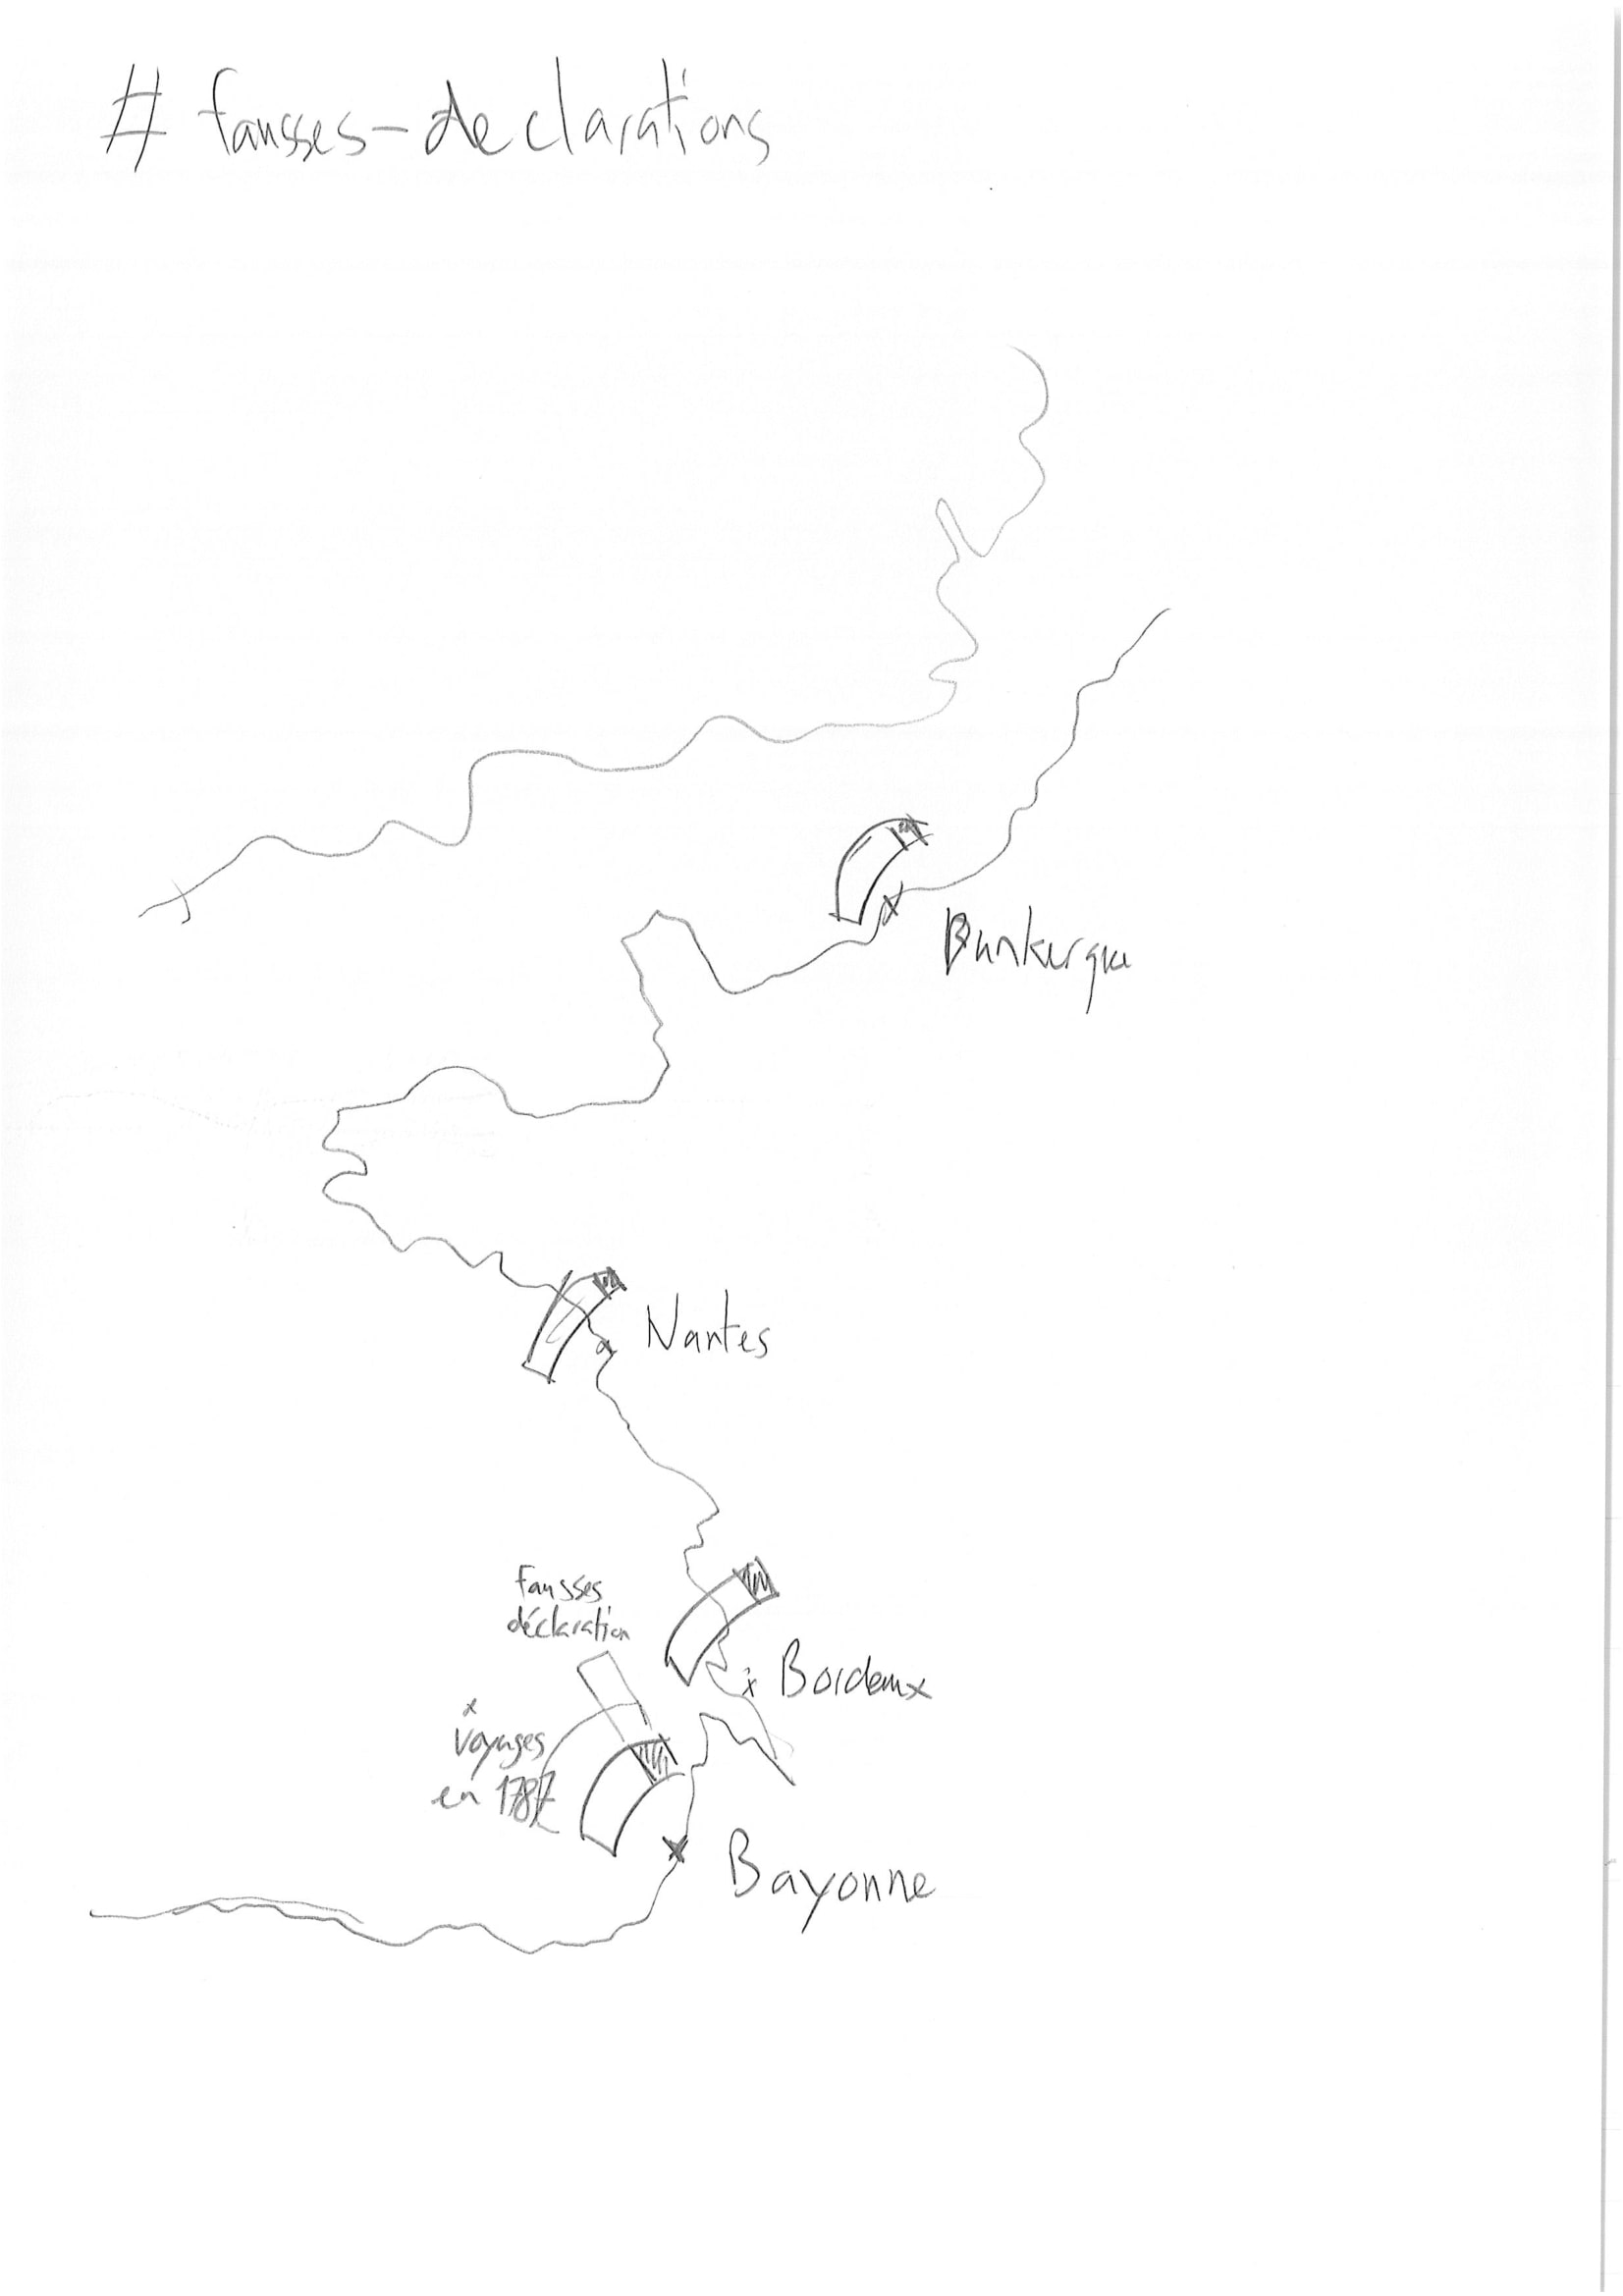 # fausses-declarations
Dunkerque
Nantes
Fausses
déclaration
Bordeaux
x
voyages
en 1787
Bayonne